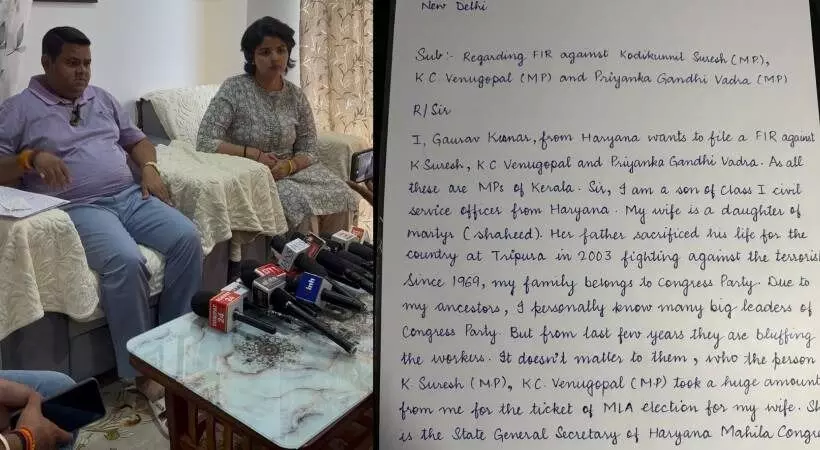 New Delhi
Sub:- Regarding FIR against Kodikunnil Suresh (MP),
K.C. Venugopal (MP) and Priyanka Gandhi Vadra (MP)
R/Sir
I, Gaurav Kumar, from Haryana wants to file a FIR against
K Suresh, K.C Venugopal and Priyanka Gandhi Vadra. As all
these are MPs of Kerala. Sir, I am a son of Class I civil
service officer from Haryana. My wife is a daughter of
martys (shaheed). Her father sacrificed his life for the
country at Tripura in 2003 fighting against the terrorist
Since 1969, my family belongs to Congress Party. Due to
my ancestors, I personally know many big leaders of
Congress Party. But from last few years they are bluffing
the workers. It doesn't matter to them, who the person
K Suresh (MP), K.C. Venugopal (MP) took a huge amount
from me for the ticket of MLA election for my wife. Sh
is the State General Secretary of Haryana Mahila Congre
24